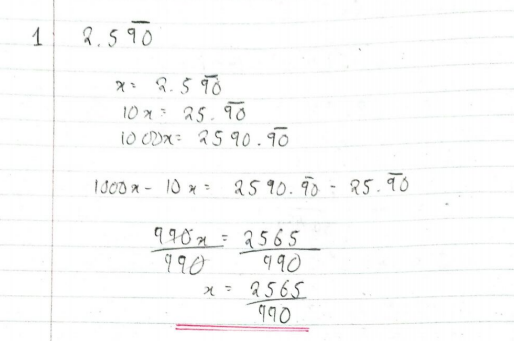 1 2.5 9̅0̅
x = 2.5 9̅0̅
10x = 25.9̅0̅
1000x = 2590.9̅0̅
1000x - 10x = 2590.9̅0̅ - 25.9̅0̅
990x = 2565
990 990
x = 2565
990